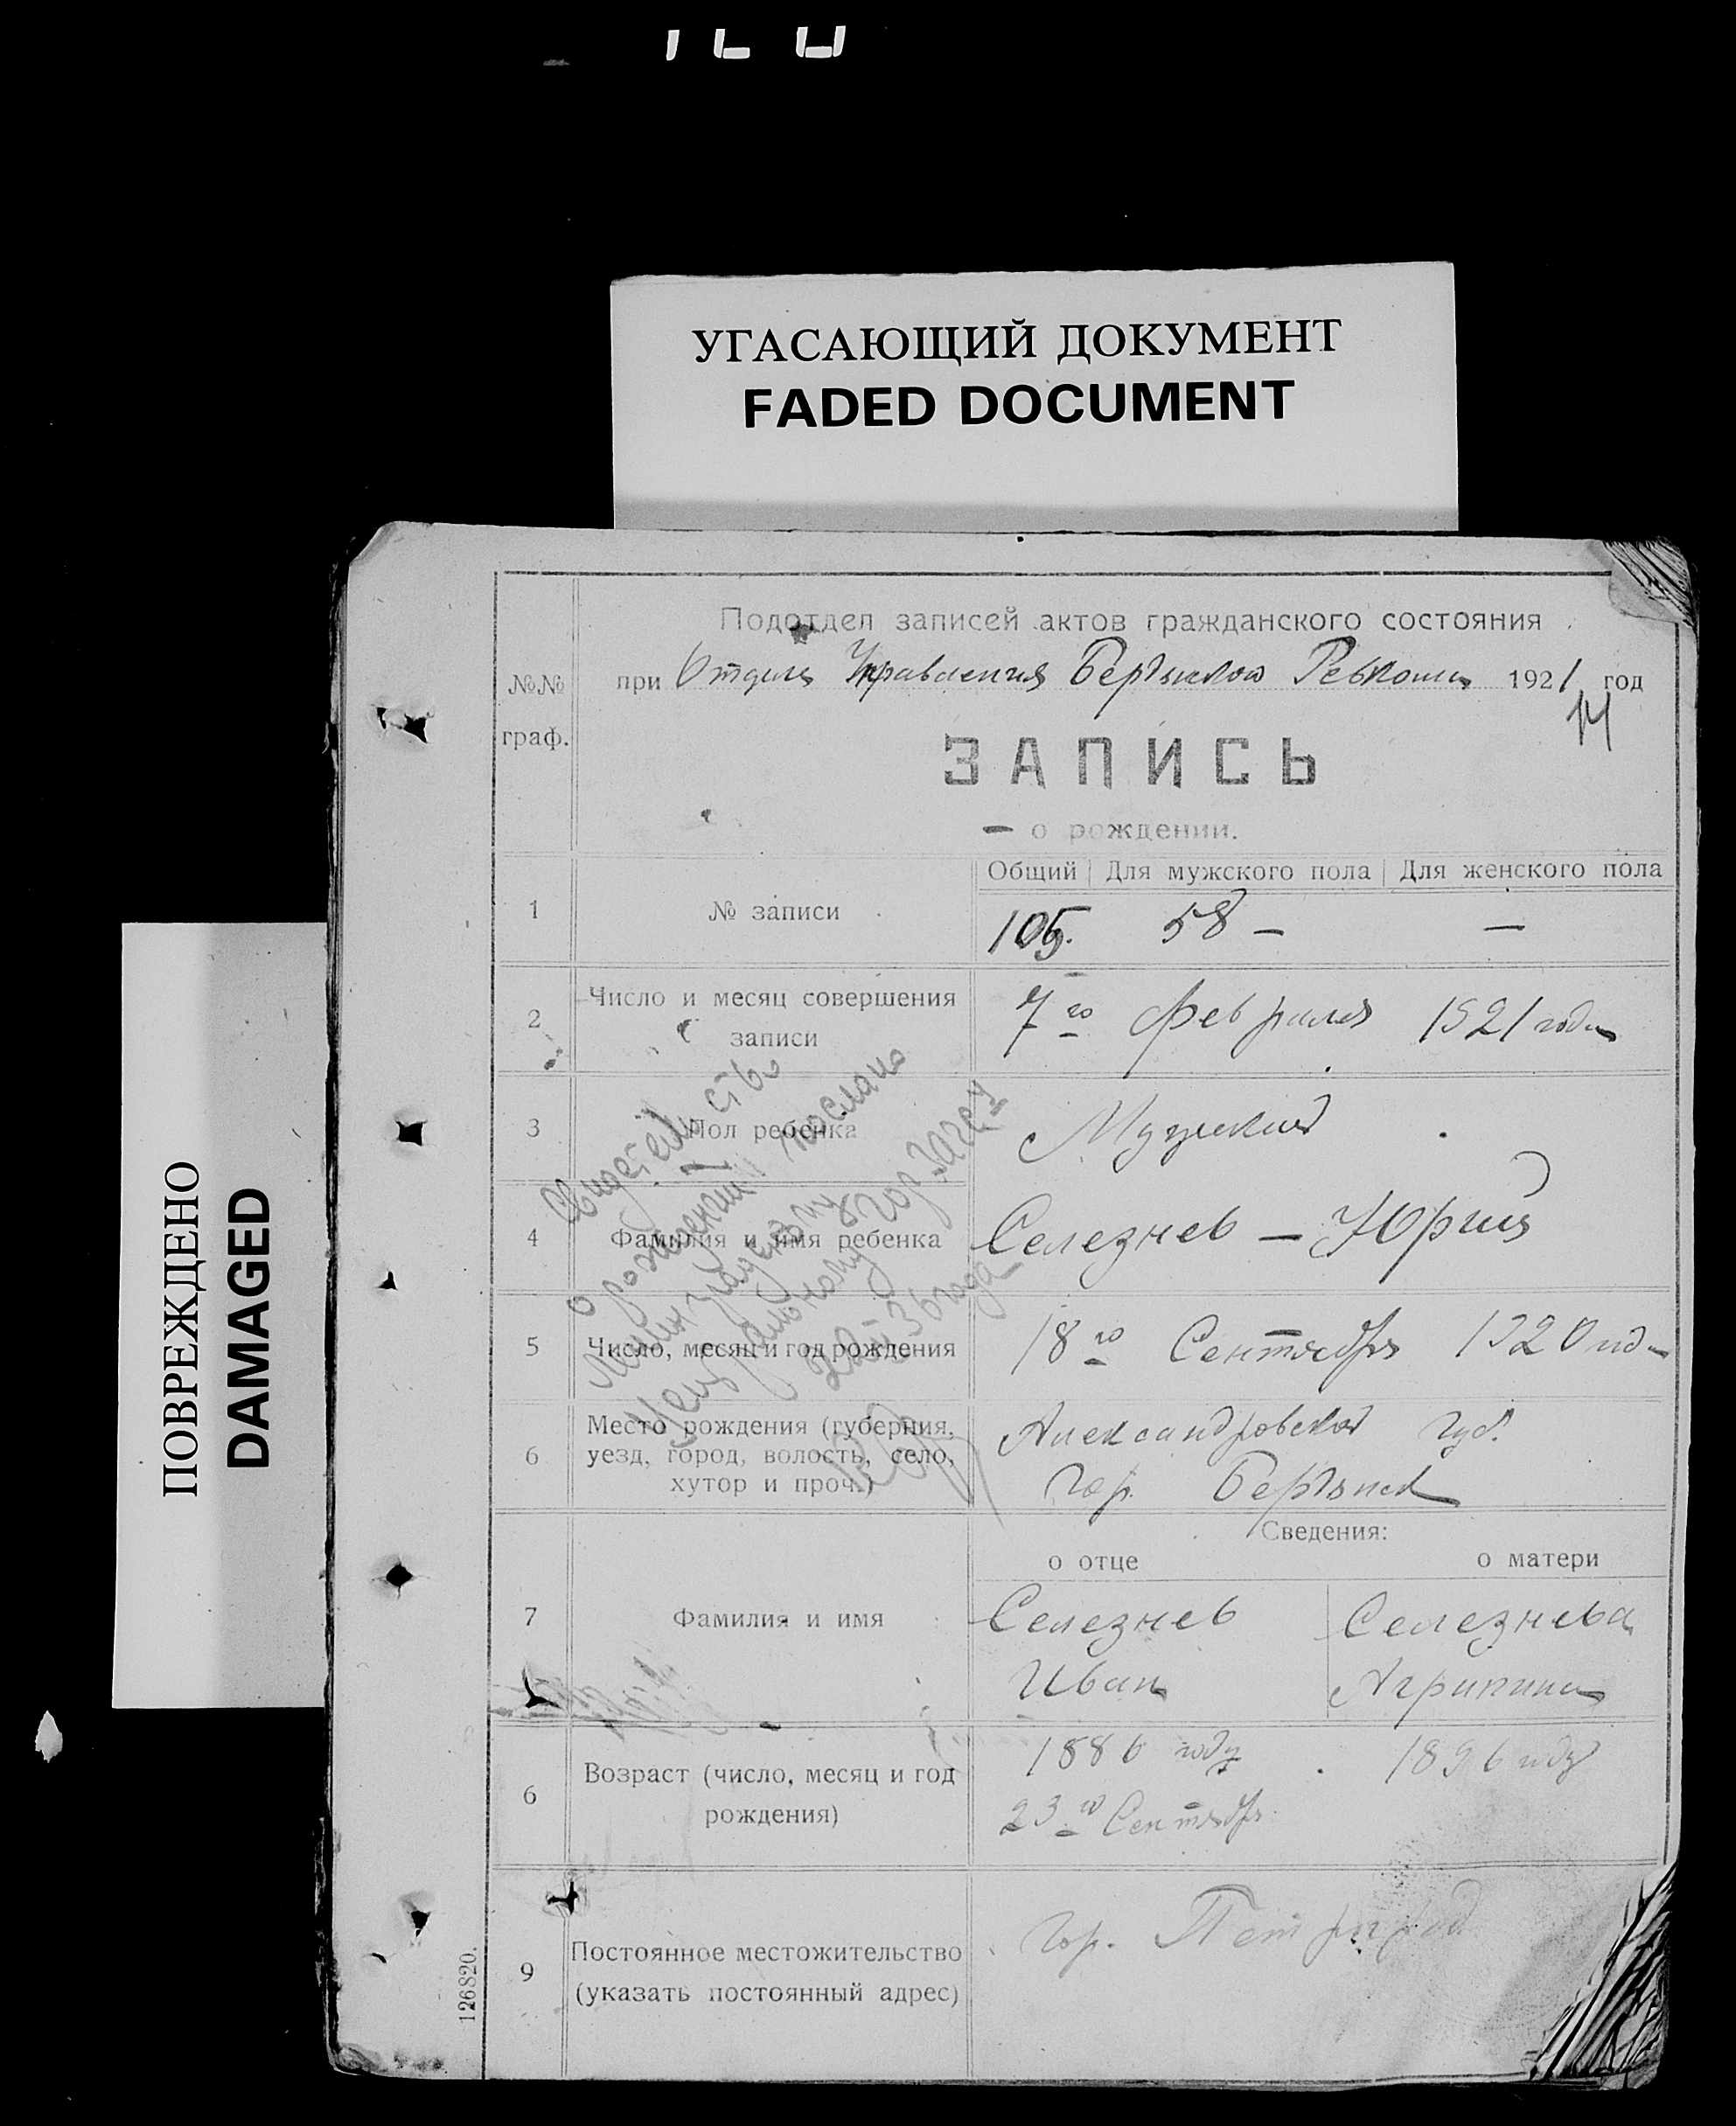 УГАСАЮЩИЙ ДОКУМЕНТ
FADED DOCUMENT
ПОВРЕЖДЕНО
DAMAGED
Подотдел записей актов гражданского состояния
№№ граф.
при Отдиле Управления Бердянской Ревкома 1921 год
14
ЗАПИСЬ
о рождении.
Общий | Для мужского пола | Для женского пола
1 № записи 105. 58 – —
2 Число и месяц совершения записи 7го февраля 1921 года
3 Пол ребенка Мужский
4 Фамилия и имя ребенка Селезнев — Юрий
5 Число, месяц и год рождения 18го Сентября 1920 года
6 Место рождения (губерния,
уезд, город, волость, село,
хутор и проч.)
Александровской губ.
гор. Бердянск
Сведения:
о отце о матери
7 Фамилия и имя
Селезнев Селезнева
Иван Агрипина
6 Возраст (число, месяц и год
рождения)
1886 году 1896 году
23го Сентябр
9 Постоянное местожительство
(указать постоянный адрес)
гор. Петроград
Свидетельство
о рождении послано
Ленинградскому
Центральному Гор. Загсу
36 года
126820.